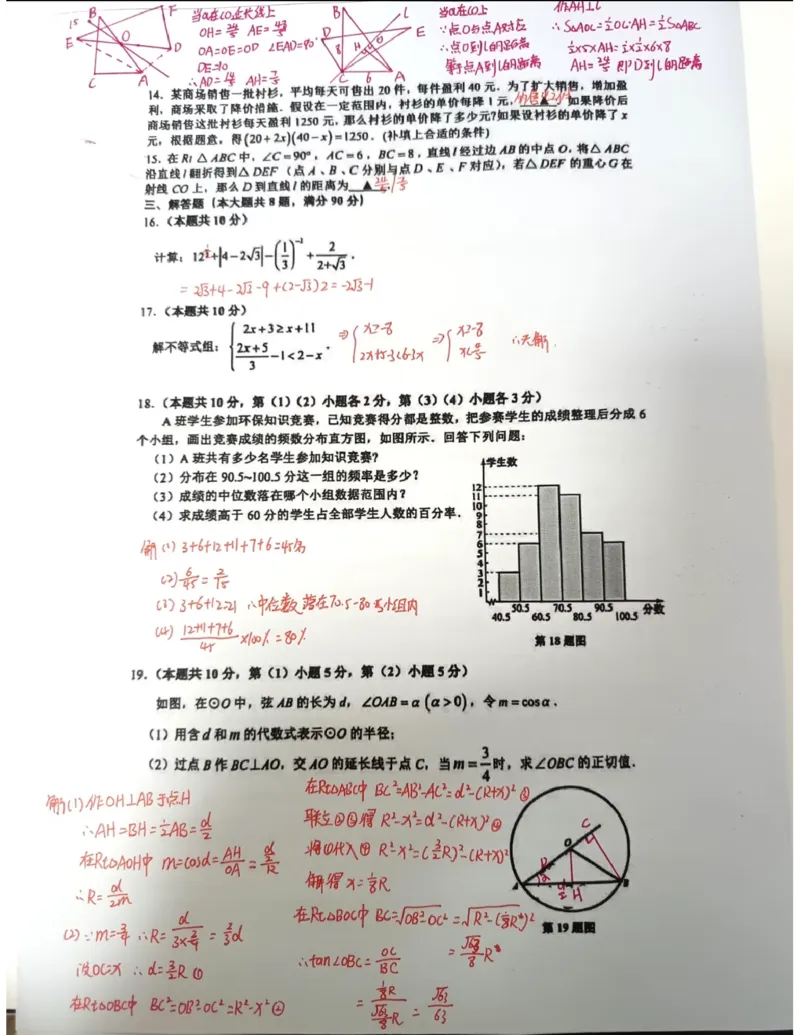 当O在CO延长线上
OH=24/5 AE=48/5
OA=OE=OD ∠EAD=90°
DE=10
当G在CO上
∵点O与点A对应
∴点O到l的距离
等于点A到l的距离
作AH⊥L
∴S△AOC=½OC·AH=½S△ABC
½×5×AH=½×½×6×8
AH=24/5 即D到l的距离
14. 某商场销售一批衬衫，平均每天可售出 20 件，每件盈利 40 元．为了扩大销售，增加盈
利，商场采取了降价措施．假设在一定范围内，衬衫的单价每降 1 元，▲．如果降价后
商场销售这批衬衫每天盈利 1250 元，那么衬衫的单价降了多少元?如果设衬衫的单价降了 x
元，根据题意，得(20+2x)(40−x)=1250．(补填上合适的条件)
15. 在 Rt △ ABC 中，∠C=90°，AC=6，BC=8，直线 l 经过边 AB 的中点 O，将△ ABC
沿直线 l 翻折得到△ DEF（点 A、B、C 分别与点 D、E、F 对应），若△ DEF 的重心 G 在
射线 CO 上，那么 D 到直线 l 的距离为 ▲
三、解答题（本大题共 8 题，满分 90 分）
16.（本题共 10 分）
计算：12^½+|4−2√3|−(1/3)^−1+2/(2+√3)．
=2√3+4-2√3-9+(2-√3)2=-2√3-1
17.（本题共 10 分）
解不等式组：{2x+3≥x+11
(2x+5)/3−1<2−x．
⇒{x≥-8
2x+5-3<6-3x
⇒{x≥-8
x<4/5
∴无解.
18.（本题共 10 分，第（1）（2）小题各 2 分，第（3）（4）小题各 3 分）
A 班学生参加环保知识竞赛，已知竞赛得分都是整数，把参赛学生的成绩整理后分成 6
个小组，画出竞赛成绩的频数分布直方图，如图所示．回答下列问题：
（1）A 班共有多少名学生参加知识竞赛?
（2）分布在 90.5~100.5 分这一组的频率是多少?
（3）成绩的中位数落在哪个小组数据范围内?
（4）求成绩高于 60 分的学生占全部学生人数的百分率．
学生数
12
11
10
9
8
7
6
5
4
3
2
1
50.5 70.5 90.5 分数
40.5 60.5 80.5 100.5
第 18 题图
解(1) 3+6+12+11+7+6=45名
(2) 6/45=2/15
(3) 3+6+12=21 ∴中位数落在70.5-80.5小组内
(4) (12+11+7+6)/45×100%=80%
19.（本题共 10 分，第（1）小题 5 分，第（2）小题 5 分）
如图，在⊙O 中，弦 AB 的长为 d，∠OAB=α (α>0)，令 m=cosα．
（1）用含 d 和 m 的代数式表示⊙O 的半径；
（2）过点 B 作 BC⊥AO，交 AO 的延长线于点 C，当 m=3/4 时，求∠OBC 的正切值．
解(1)作OH⊥AB于点H
∴AH=BH=½AB=d/2
在Rt△AOH中 m=cosα=AH/OA=(d/2)/R
∴R=d/2m
(2)∵m=3/4 ∴R=d/(2×3/4)=2/3d
设OC=x ∴d=3/2R ①
在Rt△OBC中 BC²=OB²-OC²=R²-x² ②
在Rt△ABC中 BC²=AB²-AC²=d²-(R+x)² ③
联立②③得 R²-x²=d²-(R+x)² ④
将①代入④ R²-x²=(3/2R)²-(R+x)²
解得 x=⅛R
在Rt△BOC中 BC=√OB²-OC²=√R²-(⅛R)²
=√63/8R
∴tan∠OBC=OC/BC
=⅛R/(√63/8R)=√63/63
第 19 题图